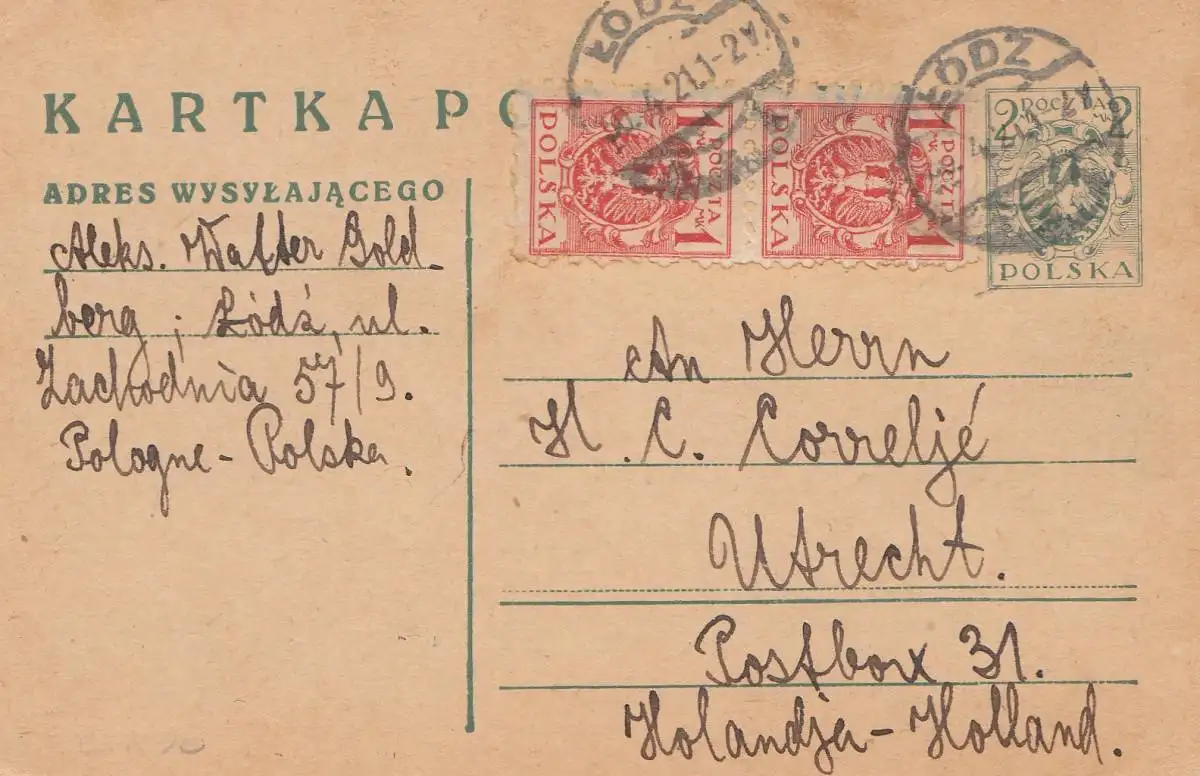 KARTKA PO
ŁÓDŹ
4.21.1-2
ŁÓDŹ
1 POCZTA MK 1
POLSKA
1 POCZTA MK 1
POLSKA
2 POCZTA 2
MK MK
POLSKA
ADRES WYSYŁAJĄCEGO
Aleks. Walter Gold-
berg; Łódź, ul.
Zachodnia 57/9.
Pologne - Polska.
An Herrn
H. C. Correljé
Utrecht.
Postbox 31.
Holandja - Holland.